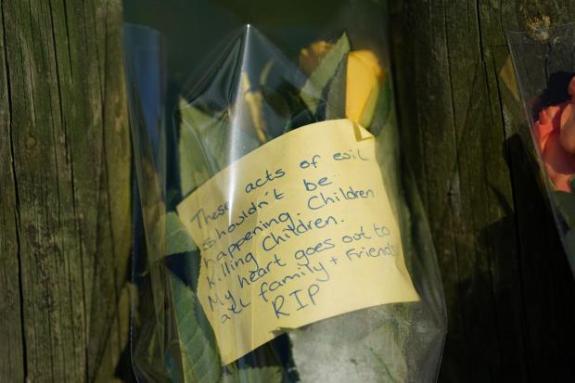 These acts of evil
shouldn't be
happening. Children
killing Children.
My heart goes out to
all family + Friends
RIP